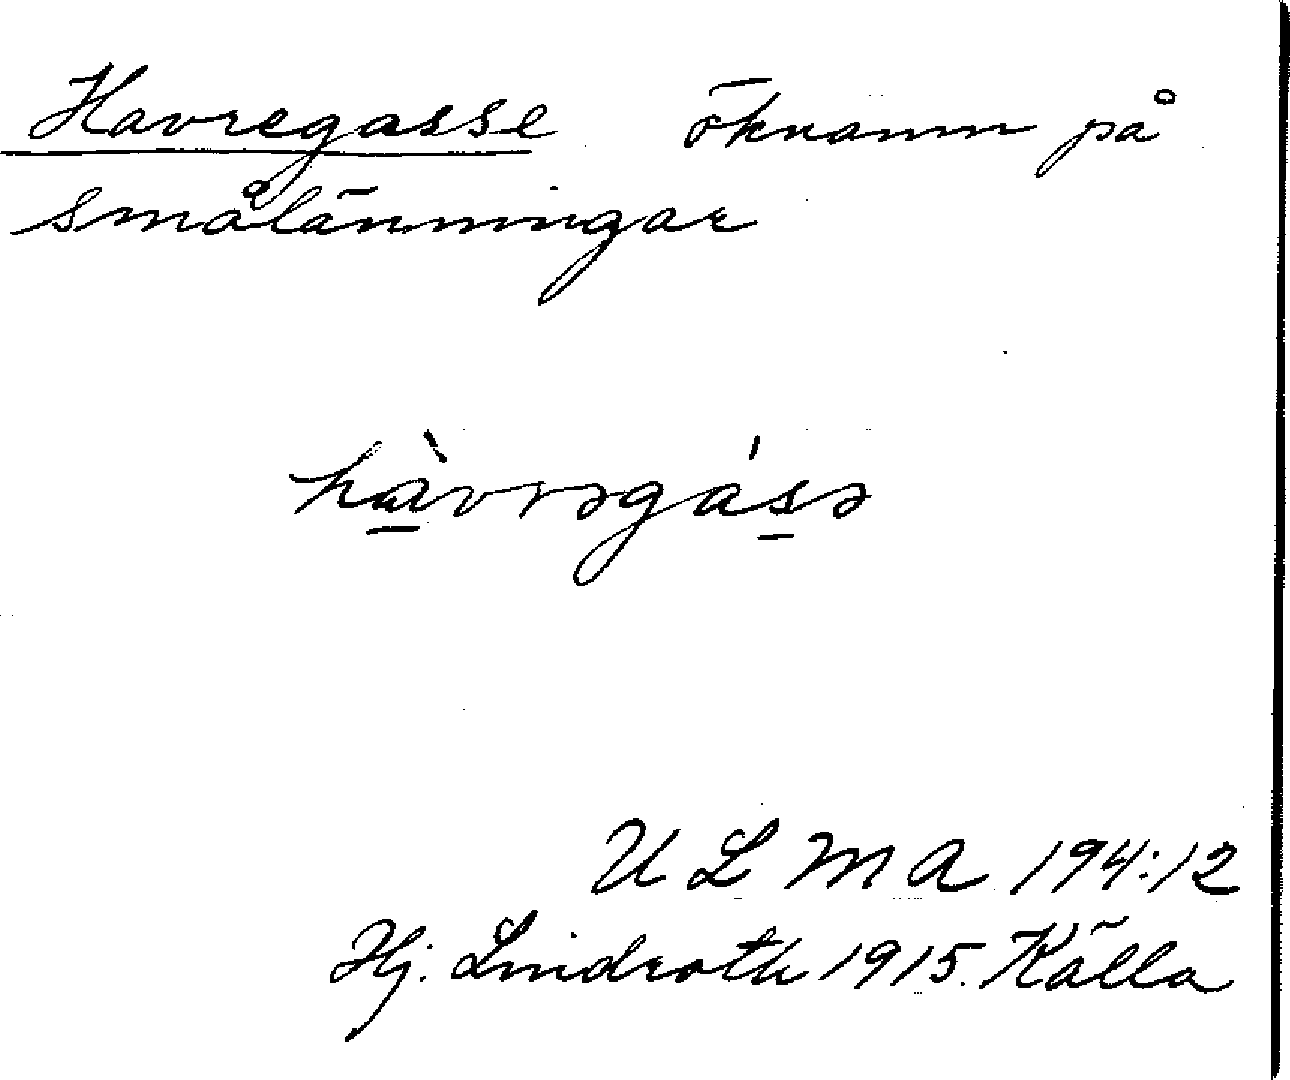 Havregasse öknamn på
smålänningar
hàvrəgásə
ULMA 194:12
Hj. Lindroth 1915. Källa